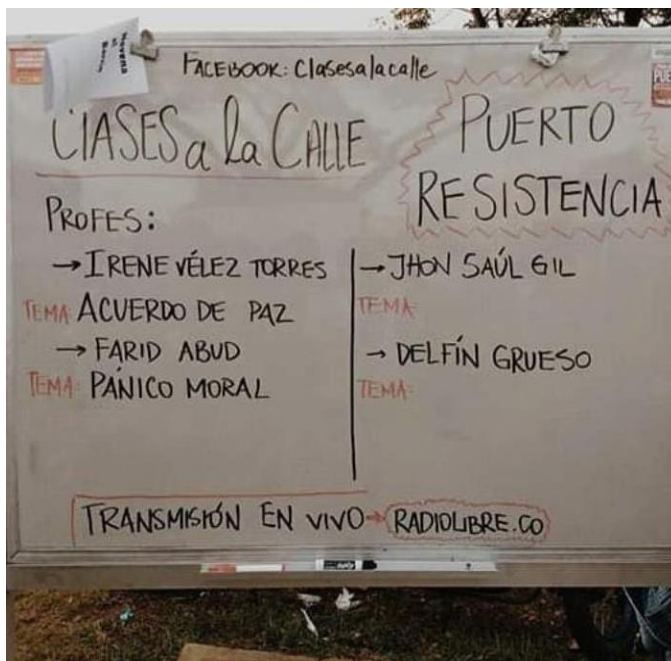 Novena al Barrio
FACEBOOK: Clasesalacalle
CLASES a la CALLE
PUERTO
RESISTENCIA
PROFES:
→ IRENE VÉLEZ TORRES
TEMA: ACUERDO DE PAZ
→ FARID ABUD
TEMA: PÁNICO MORAL
→ JHON SAÚL GIL
TEMA:
→ DELFÍN GRUESO
TEMA:
TRANSMISIÓN EN VIVO → RADIOLIBRE.CO